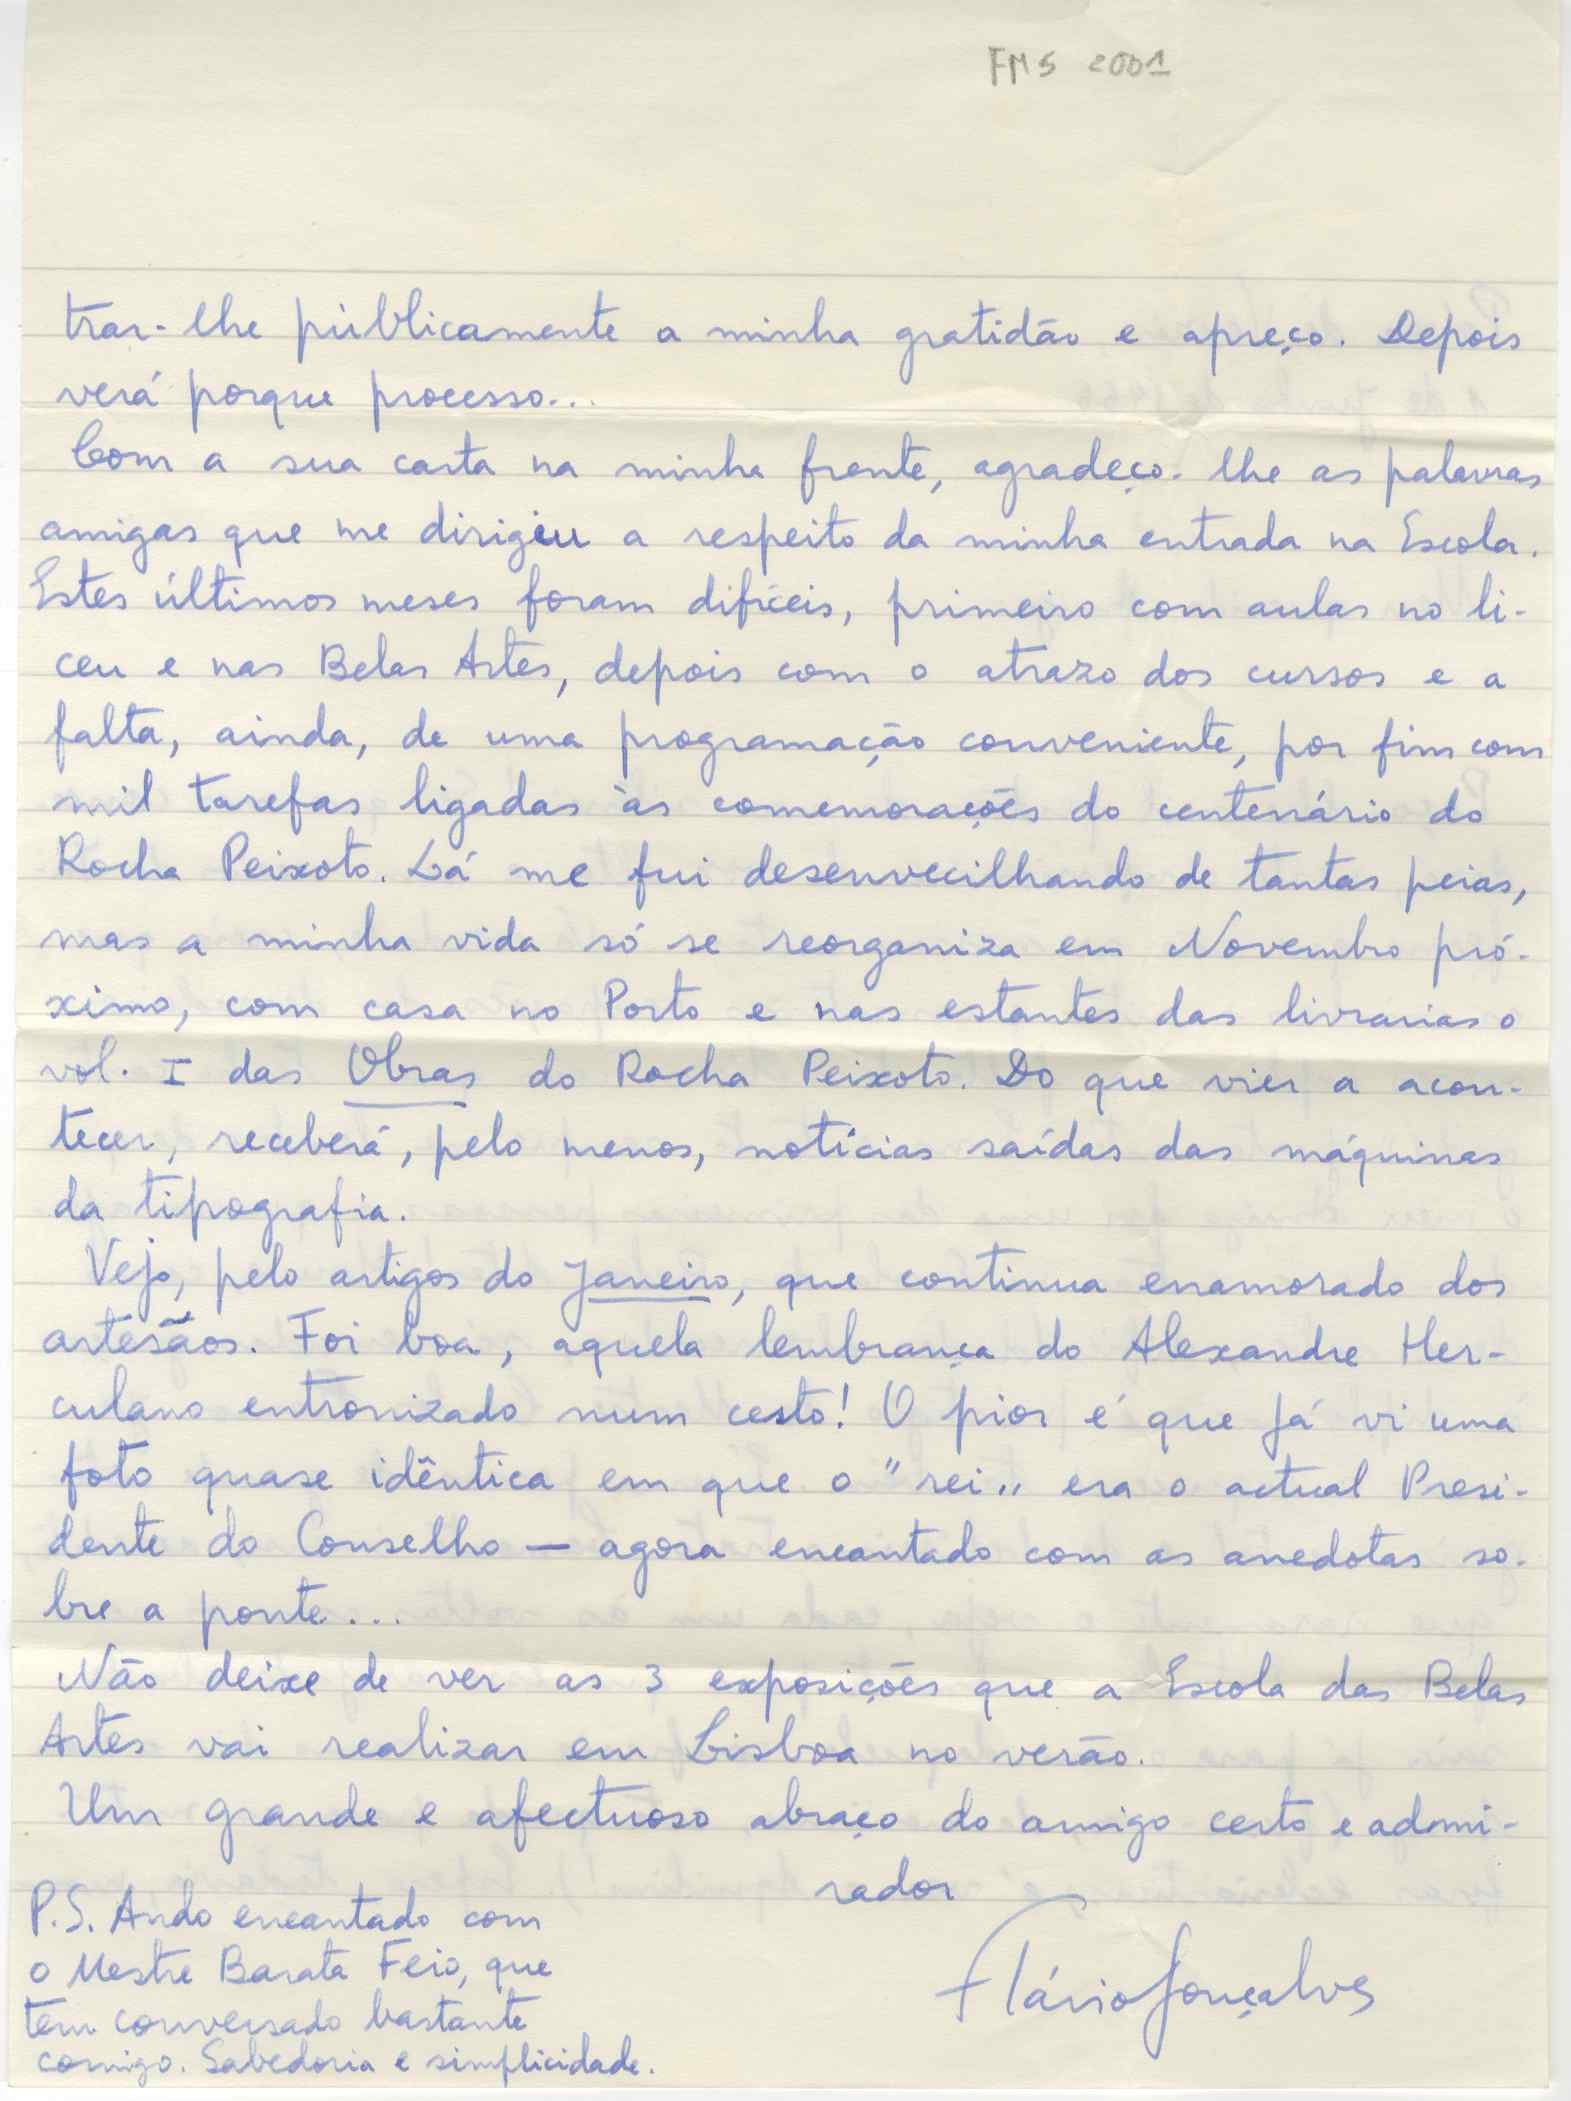 FMS 2001
trar-lhe pùblicamente a minha gratidão e apreço. Depois
verá porque processo...
Com a sua carta na minha frente, agradeço-lhe as palavras
amigas que me dirigiu a respeito da minha entrada na Escola.
Estes últimos meses foram difíceis, primeiro com aulas no li-
ceu e nas Belas Artes, depois com o atrazo dos cursos e a
falta, ainda, de uma programação conveniente, por fim com
mil tarefas ligadas às comemorações do centenário do
Rocha Peixoto. Lá me fui desenvecilhando de tantas peias,
mas a minha vida só se reorganiza em Novembro pró-
ximo, com casa no Porto e nas estantes das livrarias o
vol. I das Obras do Rocha Peixoto. Do que vier a acon-
tecer, receberá, pelo menos, notícias saídas das máquinas
da tipografia.
Vejo, pelo artigos do Janeiro, que continua enamorado dos
artesãos. Foi boa, aquela lembrança do Alexandre Her-
culano entronizado num cesto! O pior é que já vi uma
foto quase idêntica em que o "rei" era o actual Presi-
dente do Conselho — agora encantado com as anedotas so-
bre a ponte...
Não deixe de ver as 3 exposições que a Escola das Belas
Artes vai realizar em Lisboa no verão.
Um grande e afectuoso abraço do amigo certo e admi-
rador
Flávio Gonçalves
P.S. Ando encantado com
o Mestre Barata Feio, que
tem conversado bastante
comigo. Sabedoria e simplicidade.